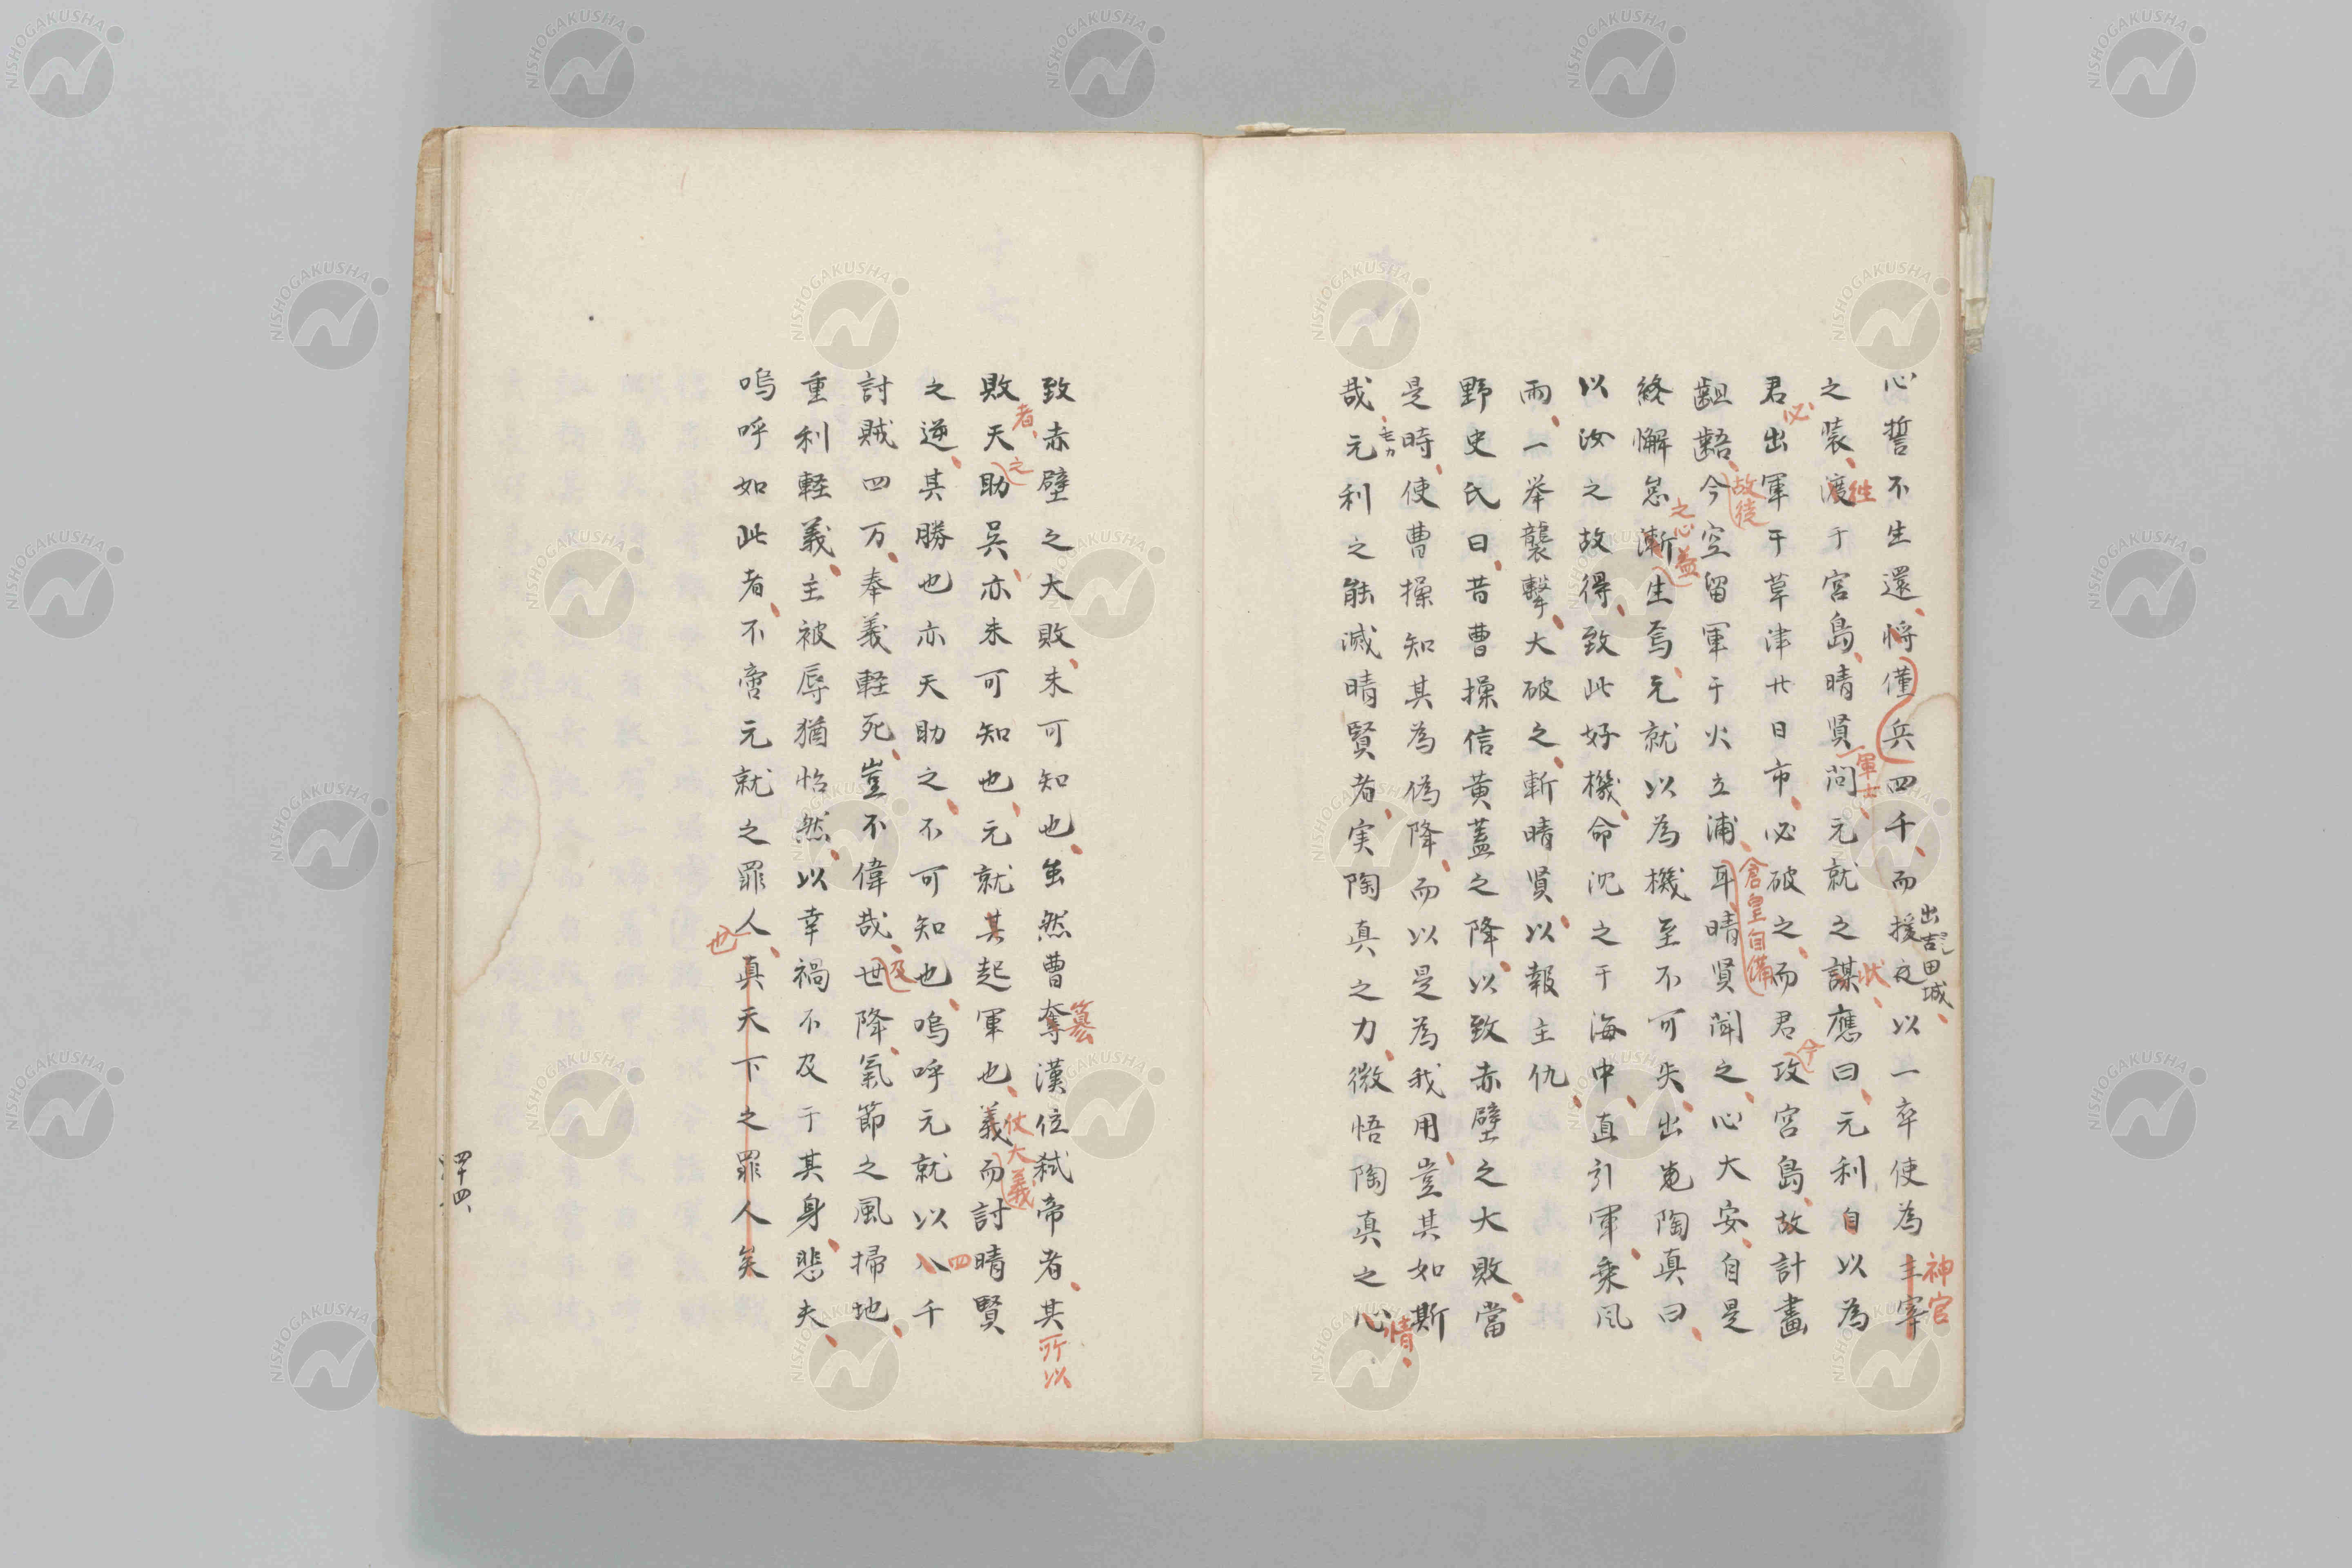 心誓不生還将僅兵四千而援之以一卒使為主宰
出吉田城
神官
之装渡于宮島晴賢問元就之謀應曰元利自以為
往
軍士
状
君出軍于草津廿日市必破之而君攻宮島故計畫
必
今
齟齬今空留軍于火立浦耳晴賢聞之心大安自是
故徒
倉皇自備
終懈怠漸生焉元就以為機至不可失出嵬陶真曰
之心益
以汝之故得致此好機命沈之于海中直引軍乗風
雨一挙襲撃大破之斬晴賢以報主仇
野史氏曰昔曹操信黄蓋之降以致赤壁之大敗當
是時使曹操知其為偽降而以是為我用豈其如斯
哉元利之能滅晴賢者実陶真之力微悟陶真之心
情
致赤壁之大敗未可知也虽然曹奪漢位弑帝者其
簒
所以
敗天助呉亦未可知也元就其起軍也義而討晴賢
者
之
仗大義
之逆其勝也亦天助之不可知也嗚呼元就以八千
四
討賊四万奉義軽死豈不偉哉世降氣節之風掃地
及
重利軽義主被辱猶恬然以幸禍不及于其身悲夫
嗚呼如此者不啻元就之罪人真天下之罪人矣
也
四十四
NISHOGAKUSHA